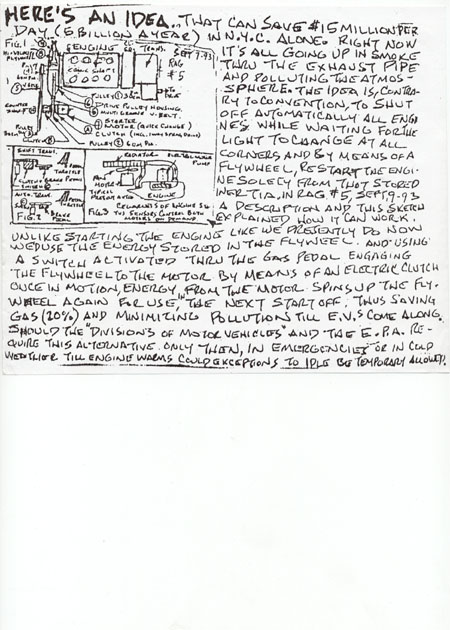 HERE'S AN IDEA... THAT CAN SAVE $15 MILLION PER
DAY (5 BILLION A YEAR) IN N.Y.C. ALONE. RIGHT NOW
IT'S ALL GOING UP IN SMOKE
THRU THE EXHAUST PIPE
AND POLLUTING THE ATMOS-
PHERE. THE IDEA IS, CONTRA-
RY TO CONVENTION, TO SHUT
OFF AUTOMATICALLY ALL ENGI-
NES, WHILE WAITING FOR THE
LIGHT TO CHANGE AT ALL
CORNERS AND BY MEANS OF A
FLYWHEEL, RESTART THE ENGI-
NE SOLELY FROM THAT STORED
INERTIA, IN RAG #5, SEPT 9-93
A DESCRIPTION AND THIS SKETCH
EXPLAINED HOW IT CAN WORK.
FIG. 1
ENGINE
TRANS.
SEPT 9-93
RAG
#5
PULLEY
DRIVE PULLEY HOUSING
MULTI GROOVE V. BELT.
STARTER
MOTOR (QUICK CHANGE)
CLUTCH
PULLEY
SHIFT TRANS.
THROTTLE
CLUTCH
BRAKE PEDAL
AUTO. TRANS.
FIG. 2
RADIATOR
ELECTRIC WATER
PUMP
FAN
MOTOR
ENGINE
FIG. 3
UNLIKE STARTING THE ENGINE LIKE WE PRESENTLY DO NOW
WE DUSE THE ENERGY STORED IN THE FLYWHEEL. AND USING
A SWITCH ACTIVATED THRU THE GAS PEDAL ENGAGING
THE FLYWHEEL TO THE MOTOR BY MEANS OF AN ELECTRIC CLUTCH
ONCE IN MOTION, ENERGY, FROM THE MOTOR SPINS UP THE FLY-
WHEEL AGAIN FOR USE, THE NEXT START OFF. THUS SAVING
GAS (20%) AND MINIMIZING POLLUTION TILL E.V.S COME ALONG.
SHOULD THE "DIVISION'S OF MOTOR VEHICLES" AND THE E.P.A. RE-
QUIRE THIS ALTERNATIVE. ONLY THEN, IN EMERGENCIES OR IN COLD
WEATHER TILL ENGINE WARMS COULD EXCEPTIONS TO IDLE BE TEMPORARY ALLOWED.